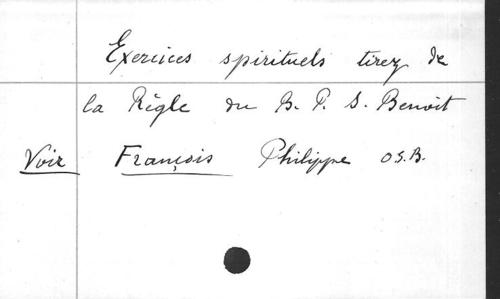 Exercices spirituels tirez de
la Règle du B. P. S. Benoit
Voir François Philippe O.S.B.